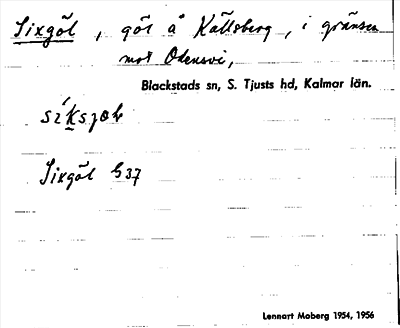 Sixgöl, göl å Källsberg, i gränsen
mot Odensvi,
Blackstads sn, S. Tjusts hd, Kalmar län.
Sixgöl G37
Lennart Moberg 1954, 1956